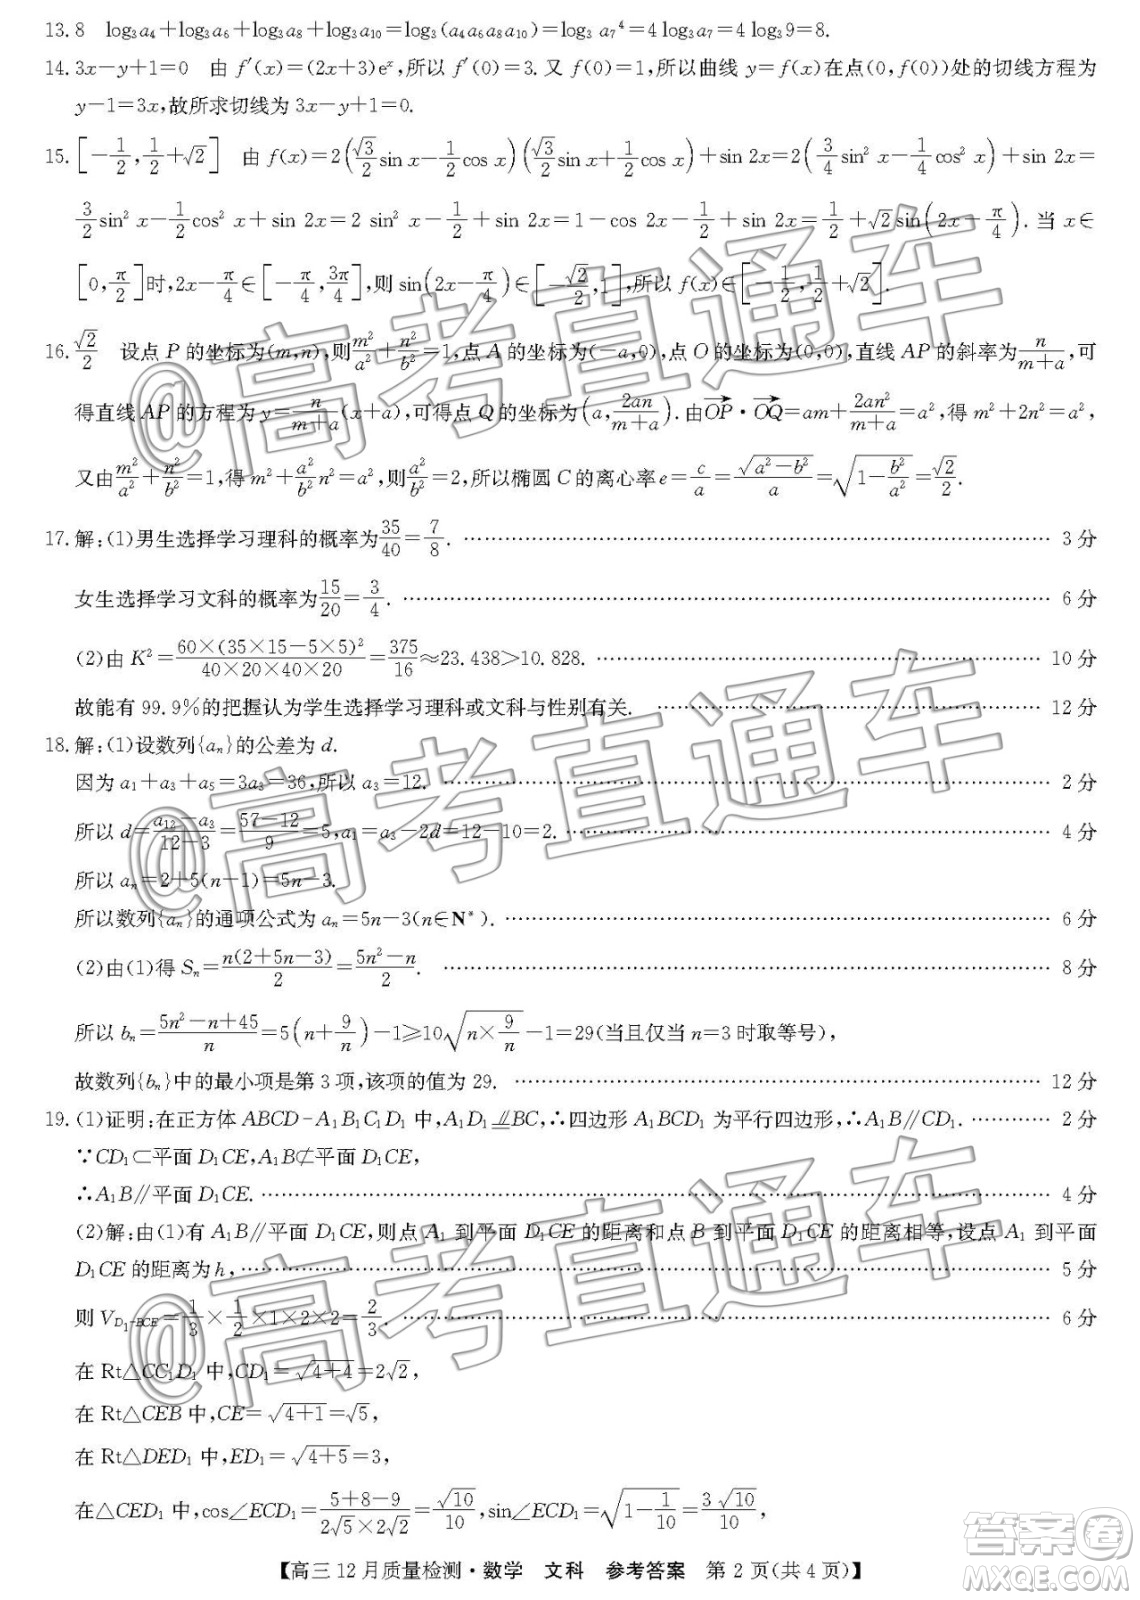 13. 8　log₃a₄+log₃a₆+log₃a₈+log₃a₁₀=log₃(a₄a₆a₈a₁₀)=log₃ a₇⁴=4log₃a₇=4 log₃9=8.
14. 3x-y+1=0　由 f′(x)=(2x+3)eˣ,所以 f′(0)=3. 又 f(0)=1,所以曲线 y=f(x)在点(0,f(0))处的切线方程为
y-1=3x,故所求切线为 3x-y+1=0.
15. [-1/2,1/2+√2]　由 f(x)=2(√3/2 sin x-1/2 cos x)(√3/2 sin x+1/2 cos x)+sin 2x=2(3/4 sin² x-1/4 cos² x)+sin 2x=
3/2 sin² x-1/2 cos² x+sin 2x=2 sin² x-1/2+sin 2x=1-cos 2x-1/2+sin 2x=1/2+√2 sin(2x-π/4). 当 x∈
[0,π/2]时,2x-π/4∈[-π/4,3π/4],则 sin(2x-π/4)∈[-√2/2,1],所以 f(x)∈[-1/2,1/2+√2].
16. √2/2　设点 P 的坐标为(m,n),则m²/a²+n²/b²=1,点 A 的坐标为(-a,0),点 O 的坐标为(0,0),直线 AP 的斜率为n/(m+a),可
得直线 AP 的方程为 y=n/(m+a)(x+a),可得点 Q 的坐标为(a,2an/(m+a)).由OP→·OQ→=am+2an²/(m+a)=a²,得 m²+2n²=a²,
又由m²/a²+n²/b²=1,得 m²+a²/b² n²=a²,则a²/b²=2,所以椭圆 C 的离心率 e=c/a=√(a²-b²)/a=√(1-b²/a²)=√2/2.
17. 解:(1)男生选择学习理科的概率为35/40=7/8. …… 3 分
女生选择学习文科的概率为15/20=3/4. …… 6 分
(2)由 K²=60×(35×15-5×5)²/(40×20×40×20)=375/16≈23.438>10.828. …… 10 分
故能有 99.9%的把握认为学生选择学习理科或文科与性别有关. …… 12 分
18. 解:(1)设数列{aₙ}的公差为 d.
因为 a₁+a₃+a₅=3a₃=36,所以 a₃=12. …… 2 分
所以 d=(a₁₂-a₃)/(12-3)=(57-12)/9=5,a₁=a₃-2d=12-10=2. …… 4 分
所以 aₙ=2+5(n-1)=5n-3.
所以数列{aₙ}的通项公式为 aₙ=5n-3(n∈N*). …… 6 分
(2)由(1)得 Sₙ=n(2+5n-3)/2=(5n²-n)/2. …… 8 分
所以 bₙ=(5n²-n+45)/n=5(n+9/n)-1≥10√(n×9/n)-1=29(当且仅当 n=3 时取等号),
故数列{bₙ}中的最小项是第 3 项,该项的值为 29. …… 12 分
19. (1)证明:在正方体 ABCD-A₁B₁C₁D₁ 中,A₁D₁⫽BC,∴四边形 A₁BCD₁ 为平行四边形,∴A₁B∥CD₁. …… 2 分
∵CD₁⊂平面 D₁CE,A₁B⊄平面 D₁CE,
∴A₁B∥平面 D₁CE. …… 4 分
(2)解:由(1)有 A₁B∥平面 D₁CE,则点 A₁ 到平面 D₁CE 的距离和点 B 到平面 D₁CE 的距离相等,设点 A₁ 到平面
D₁CE 的距离为 h, …… 5 分
则 V_{D₁-BCE}=1/3×1/2×1×2×2=2/3. …… 6 分
在 Rt△CC₁D₁ 中,CD₁=√(4+4)=2√2,
在 Rt△CEB 中,CE=√(4+1)=√5,
在 Rt△DED₁ 中,ED₁=√(4+5)=3,
在△CED₁ 中,cos∠ECD₁=(5+8-9)/(2√5×2√2)=√10/10,sin∠ECD₁=√(1-1/10)=3√10/10,
【高三 12 月质量检测·数学　文科　参考答案　第 2 页(共 4 页)】
@高考直通车
@高考直通车
@高考直通车
答案圈
MXQE.COM